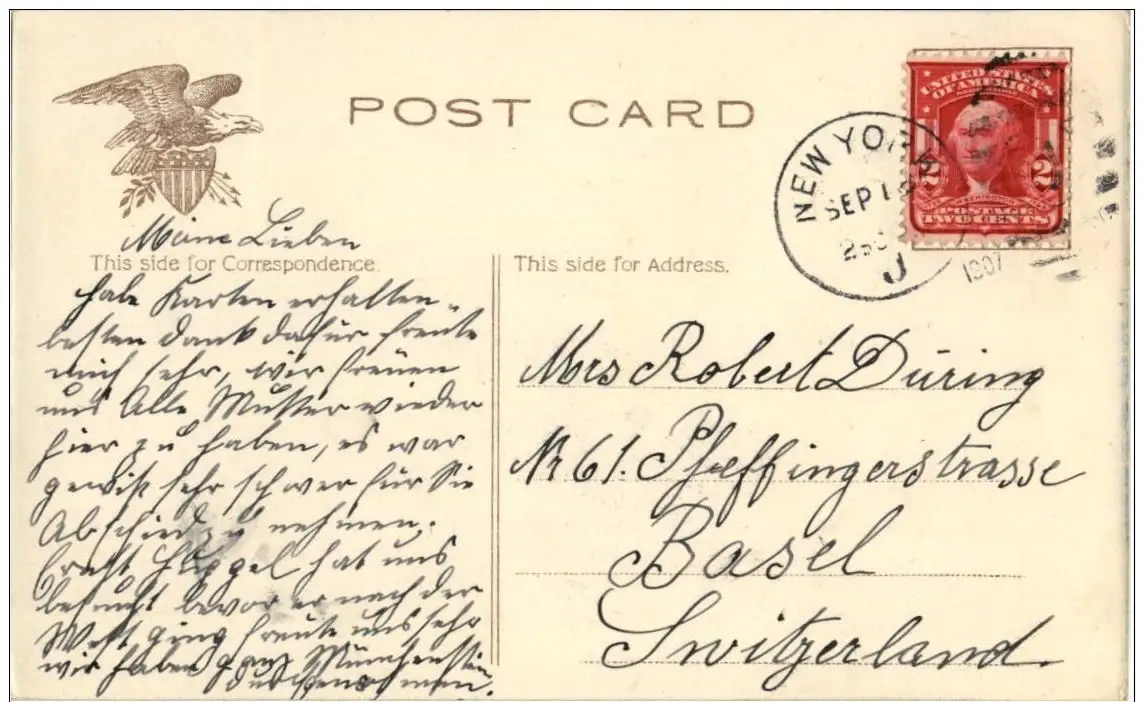 POST CARD
UNITED STATES
OF AMERICA
2 2
WASHINGTON
POSTAGE
TWO CENTS
NEW YORK
SEP
J
1907
This side for Correspondence.
This side for Address.
Meine Lieben
habe Karten erhalten,
besten Dank dafür freute
mich sehr, wir freuen
uns Alle Mutter wieder
hier zu haben, es war
gewiß sehr schwer für Sie
Abschied zu nehmen.
hat uns
besucht bevor er nach der
West ging freute uns sehr
wir haben ganz Münchenstein
Mrs Robert Düring
Nr 61. Pfeffingerstrasse
Basel
Switzerland.